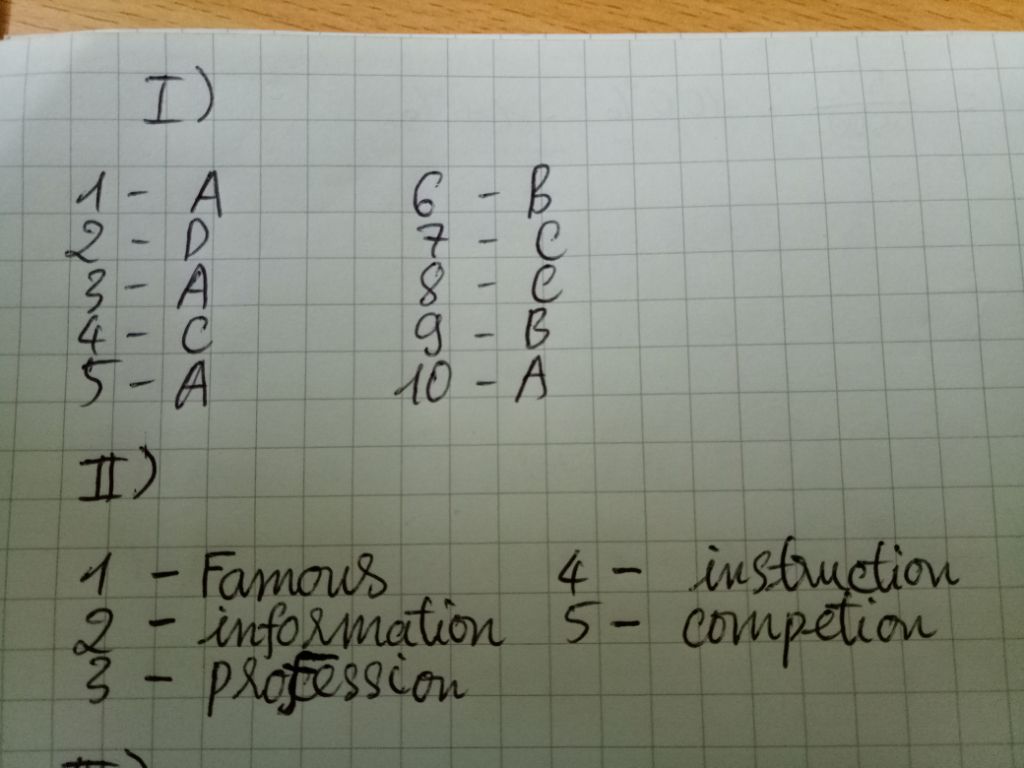 I)
1 - A 6 - B
2 - D 7 - C
3 - A 8 - C
4 - C 9 - B
5 - A 10 - A
II)
1 - Famous 4 - instruction
2 - information 5 - competion
3 - profession